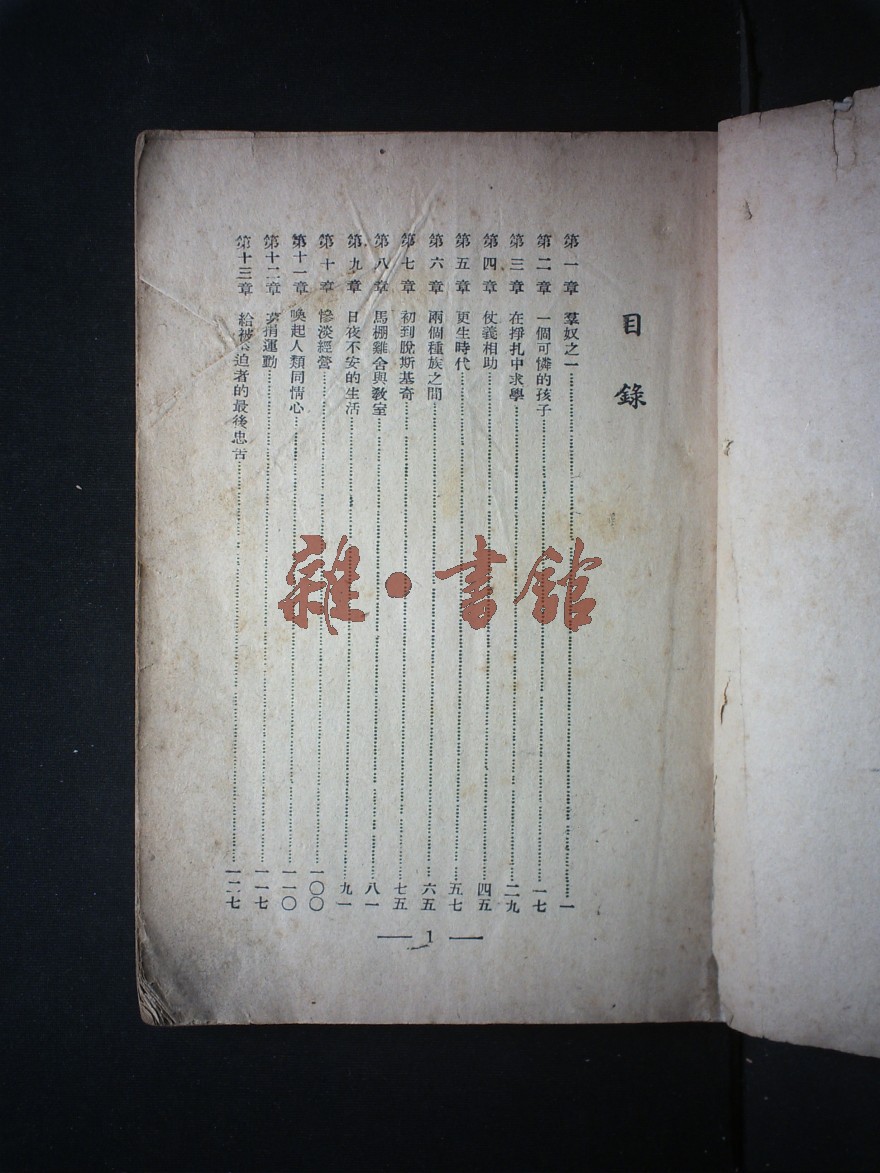 目錄
第一章 羣奴之一 一
第二章 一個可憐的孩子 一七
第三章 在掙扎中求學 二九
第四章 仗義相助 四五
第五章 更生時代 五七
第六章 兩個種族之間 六五
第七章 初到脫斯基奇 七五
第八章 馬棚雞舍與教室 八一
第九章 日夜不安的生活 九一
第十章 慘淡經營 一〇〇
第十一章 喚起人類同情心 一一〇
第十二章 捐運動 一一七
第十三章 給被 迫者的最後忠告 一二七
— 1 —
雜·書館